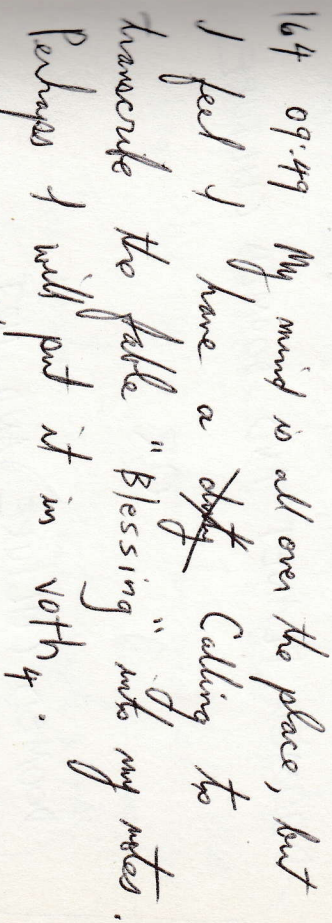 164 09:49 My mind is all over the place, but
I feel I have a duty Calling to
transcribe the fable "Blessing" into my notes.
Perhaps I will put it in voth4.